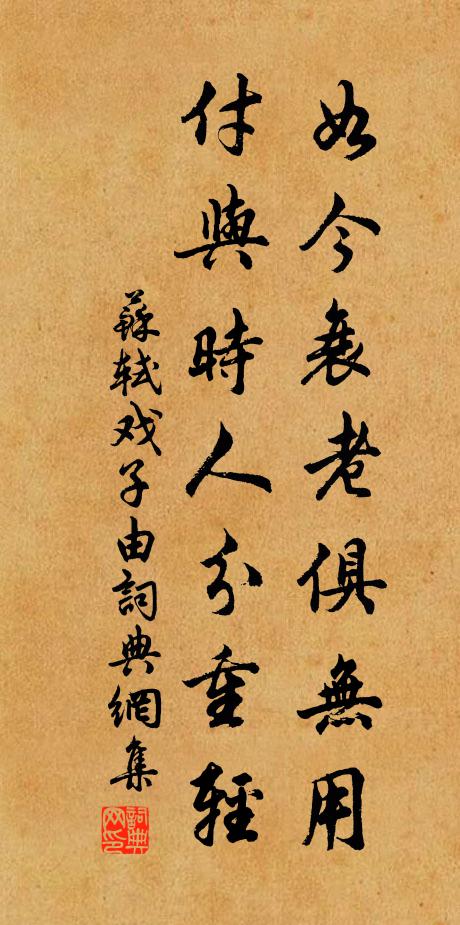 如今衰老俱無用
付與時人分重輕
蘇軾戏子由詞典網集
詞典网印